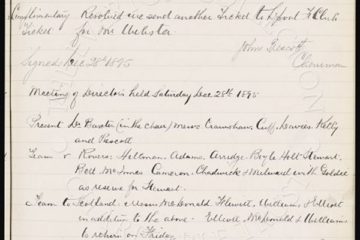 Complimentary Resolved we send another Ticket to L'pool F Club
Ticket for Mr Webster
John Prescott
Chairman
Signed Dec 28th 1895
Meeting of Directors held Saturday Dec. 28th 1895
Present Dr Baxter (in the chair) Messrs Crawshaw, Cuff, Davies, Kelly
and Prescott
Team v Rovers: Hillman, Adams, Arridge, Boyle Holt Stewart,
Bell McInnes Cameron Chadwick & Milward with Goldie
as reserve for Stewart.
Team to Scotland: McDonald, Williams, & Elliott
in addition to the above - Elliott, McDonald & Williams
to return on Friday